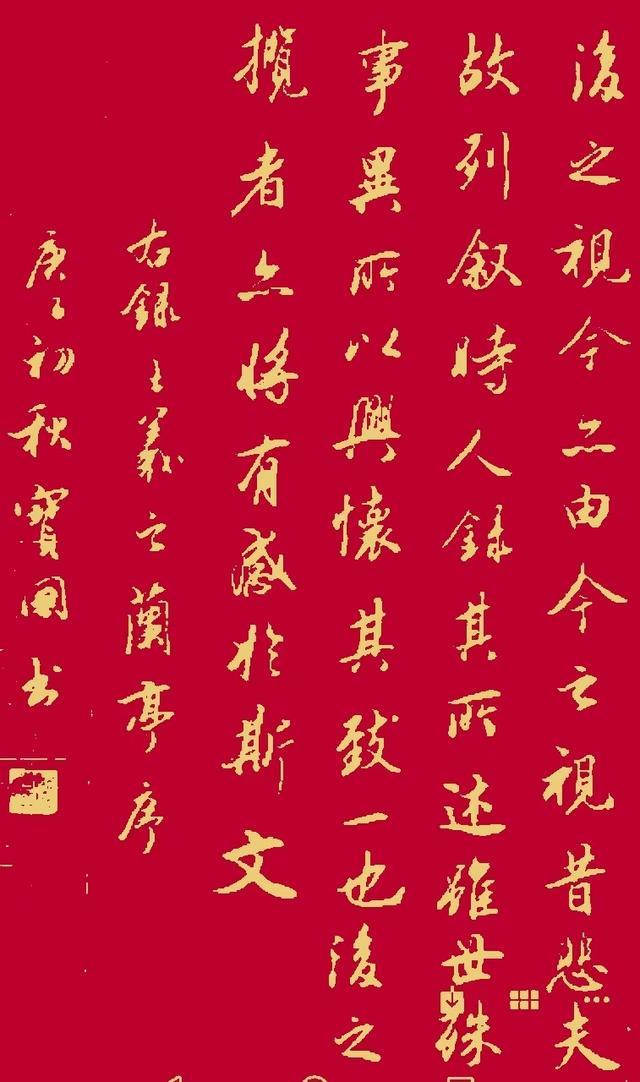 後之視今亦由今之視昔悲夫
故列叙時人録其所述雖世殊
事異所以興懷其致一也後之
攬者亦將有感於斯文
右録王羲之蘭亭序
庚子初秋寶国书